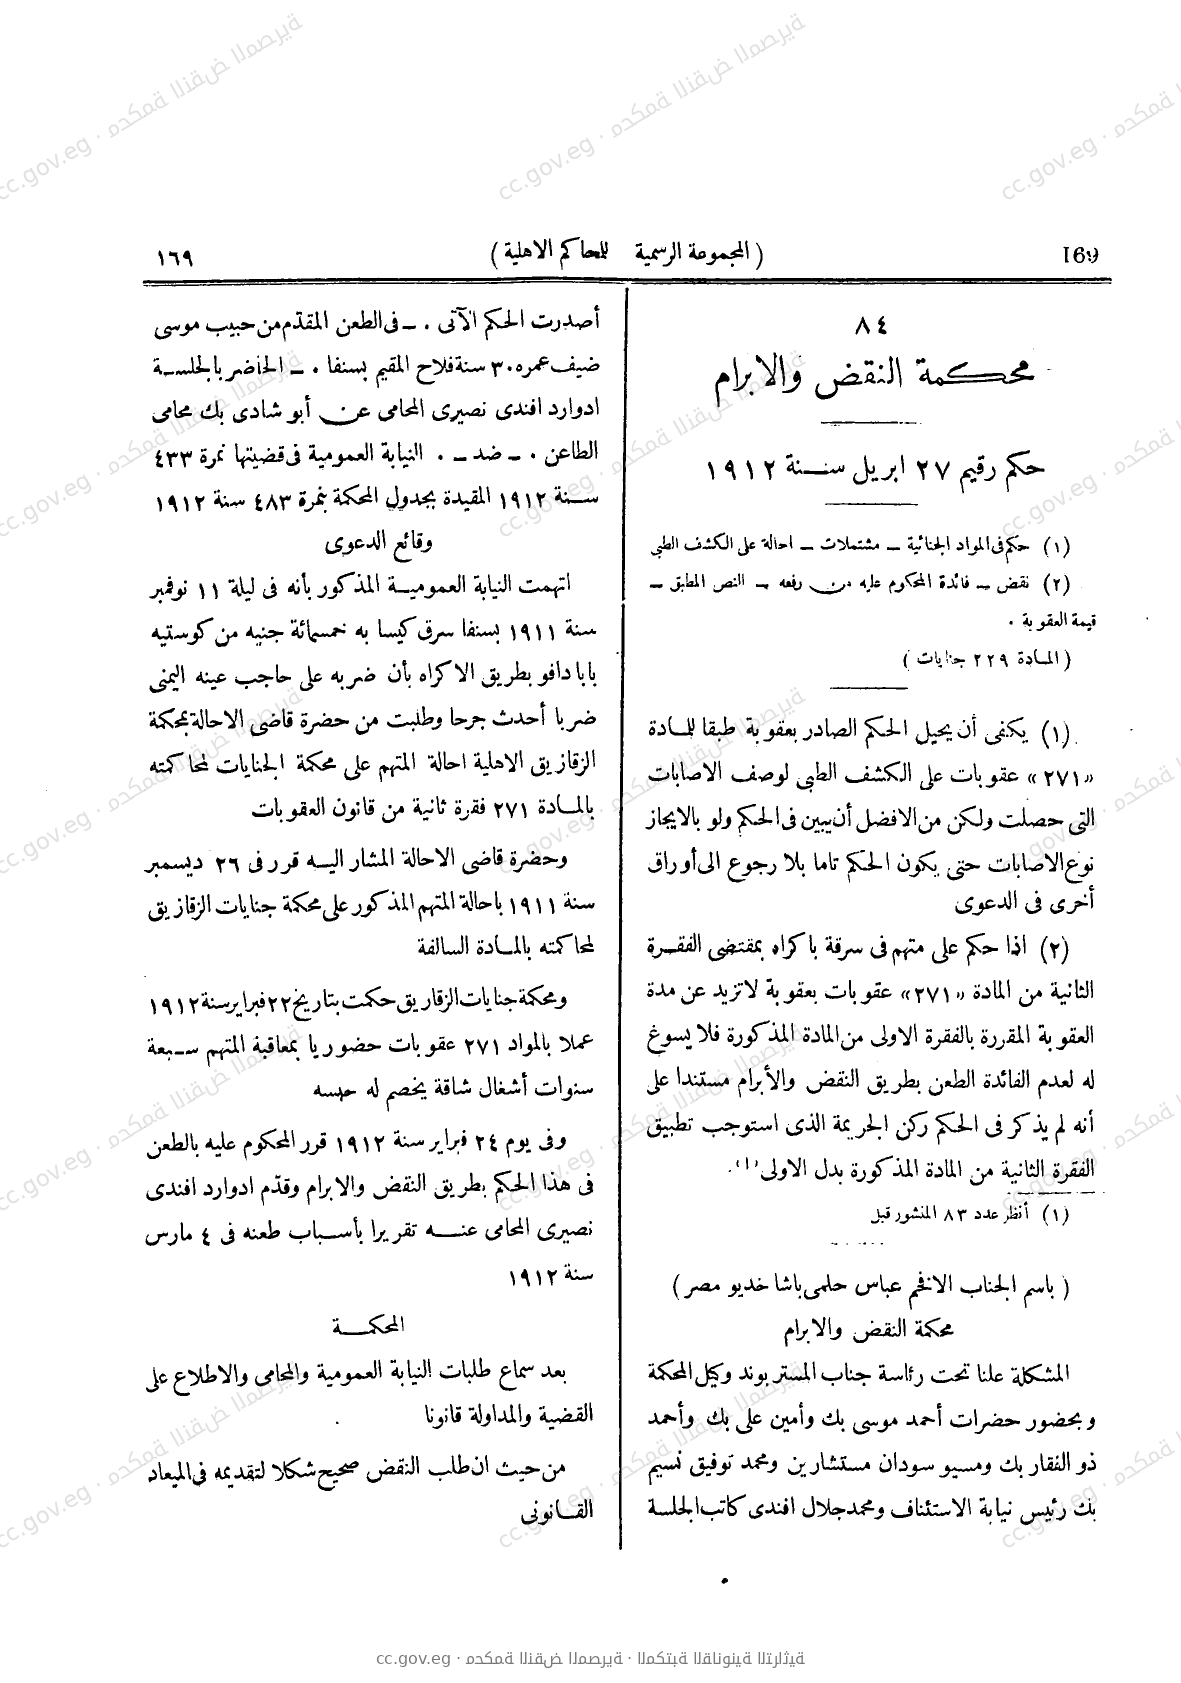 169
( المجموعة الرسمية للمحاكم الاهلية )
١٦٩
٨٤
محكمة النقض والابرام
حكم رقيم ٢٧ ابريل سنة ١٩١٢
(١) حكم فى المواد الجنائية ــ مشتملات ــ احالة على الكشف الطبى
(٢) نقض ــ فائدة المحكوم عليه من رفعه ــ النص المطبق ــ
قيمة العقوبة ٠
( المادة ٢٢٩ جنايات )
(١) يكفى أن يحيل الحكم الصادر بعقوبة طبقا للمادة
«٢٧١» عقوبات على الكشف الطبى لوصف الاصابات
التى حصلت ولكن من الافضل أن يبين فى الحكم ولو بالايجاز
نوع الاصابات حتى يكون الحكم تاما بلا رجوع الى أوراق
أخرى فى الدعوى
(٢) اذا حكم على متهم فى سرقة باكراه بمقتضى الفقرة
الثانية من المادة «٢٧١» عقوبات بعقوبة لاتزيد عن مدة
العقوبة المقررة بالفقرة الاولى من المادة المذكورة فلا يسوغ
له لعدم الفائدة الطعن بطريق النقض والأبرام مستندا على
أنه لم يذكر فى الحكم ركن الجريمة الذى استوجب تطبيق
الفقرة الثانية من المادة المذكورة بدل الاولى (١).
(١) أنظر عدد ٨٣ المنشور قبل
( باسم الجناب الافخم عباس حلمى باشا خديو مصر )
محكمة النقض والابرام
المشكلة علنا تحت رئاسة جناب المستر بوند وكيل المحكمة
وبحضور حضرات أحمد موسى بك وأمين على بك وأحمد
ذو الفقار بك ومسيو سودان مستشارين ومحمد توفيق نسيم
بك رئيس نيابة الاستئناف ومحمد جلال افندى كاتب الجلسة
أصدرت الحكم الآتى ٠ ــ فى الطعن المقدّم من حبيب موسى
ضيف عمره ٣٠ سنة فلاح المقيم بسنفا ٠ ــ الحاضر بالجلسة
ادوارد افندى نصيرى المحامى عن أبو شادى بك محامى
الطاعن ٠ ــ ضد ــ ٠ النيابة العمومية فى قضيتها نمرة ٤٣٣
سنة ١٩١٢ المقيدة بجدول المحكمة بنمرة ٤٨٣ سنة ١٩١٢
وقائع الدعوى
اتهمت النيابة العمومية المذكور بأنه فى ليلة ١١ نوفمبر
سنة ١٩١١ بسنفا سرق كيسا به خمسمائة جنيه من كوستيه
بابا دافو بطريق الاكراه بأن ضربه على حاجب عينه اليمنى
ضربا أحدث جرحا وطلبت من حضرة قاضى الاحالة بمحكمة
الزقازيق الاهلية احالة المتهم على محكمة الجنايات لمحاكمته
بالمادة ٢٧١ فقرة ثانية من قانون العقوبات
وحضرة قاضى الاحالة المشار اليه قرر فى ٢٦ ديسمبر
سنة ١٩١١ باحالة المتهم المذكور على محكمة جنايات الزقازيق
لمحاكمته بالمادة السالفة
ومحكمة جنايات الزقازيق حكمت بتاريخ ٢٢ فبراير سنة ١٩١٢
عملا بالمواد ٢٧١ عقوبات حضوريا بمعاقبة المتهم سبعة
سنوات أشغال شاقة يخصم له حبسه
وفى يوم ٢٤ فبراير سنة ١٩١٢ قرر المحكوم عليه بالطعن
فى هذا الحكم بطريق النقض والابرام وقدّم ادوارد افندى
نصيرى المحامى عنه تقريرا بأسباب طعنه فى ٤ مارس
سنة ١٩١٢
المحكمة
بعد سماع طلبات النيابة العمومية والمحامى والاطلاع على
القضية والمداولة قانونا
من حيث ان طلب النقض صحيح شكلا لتقديمه فى الميعاد
القانونى
cc.gov.eg · محكمة النقض المصرية · المكتبة القانونية التراثية